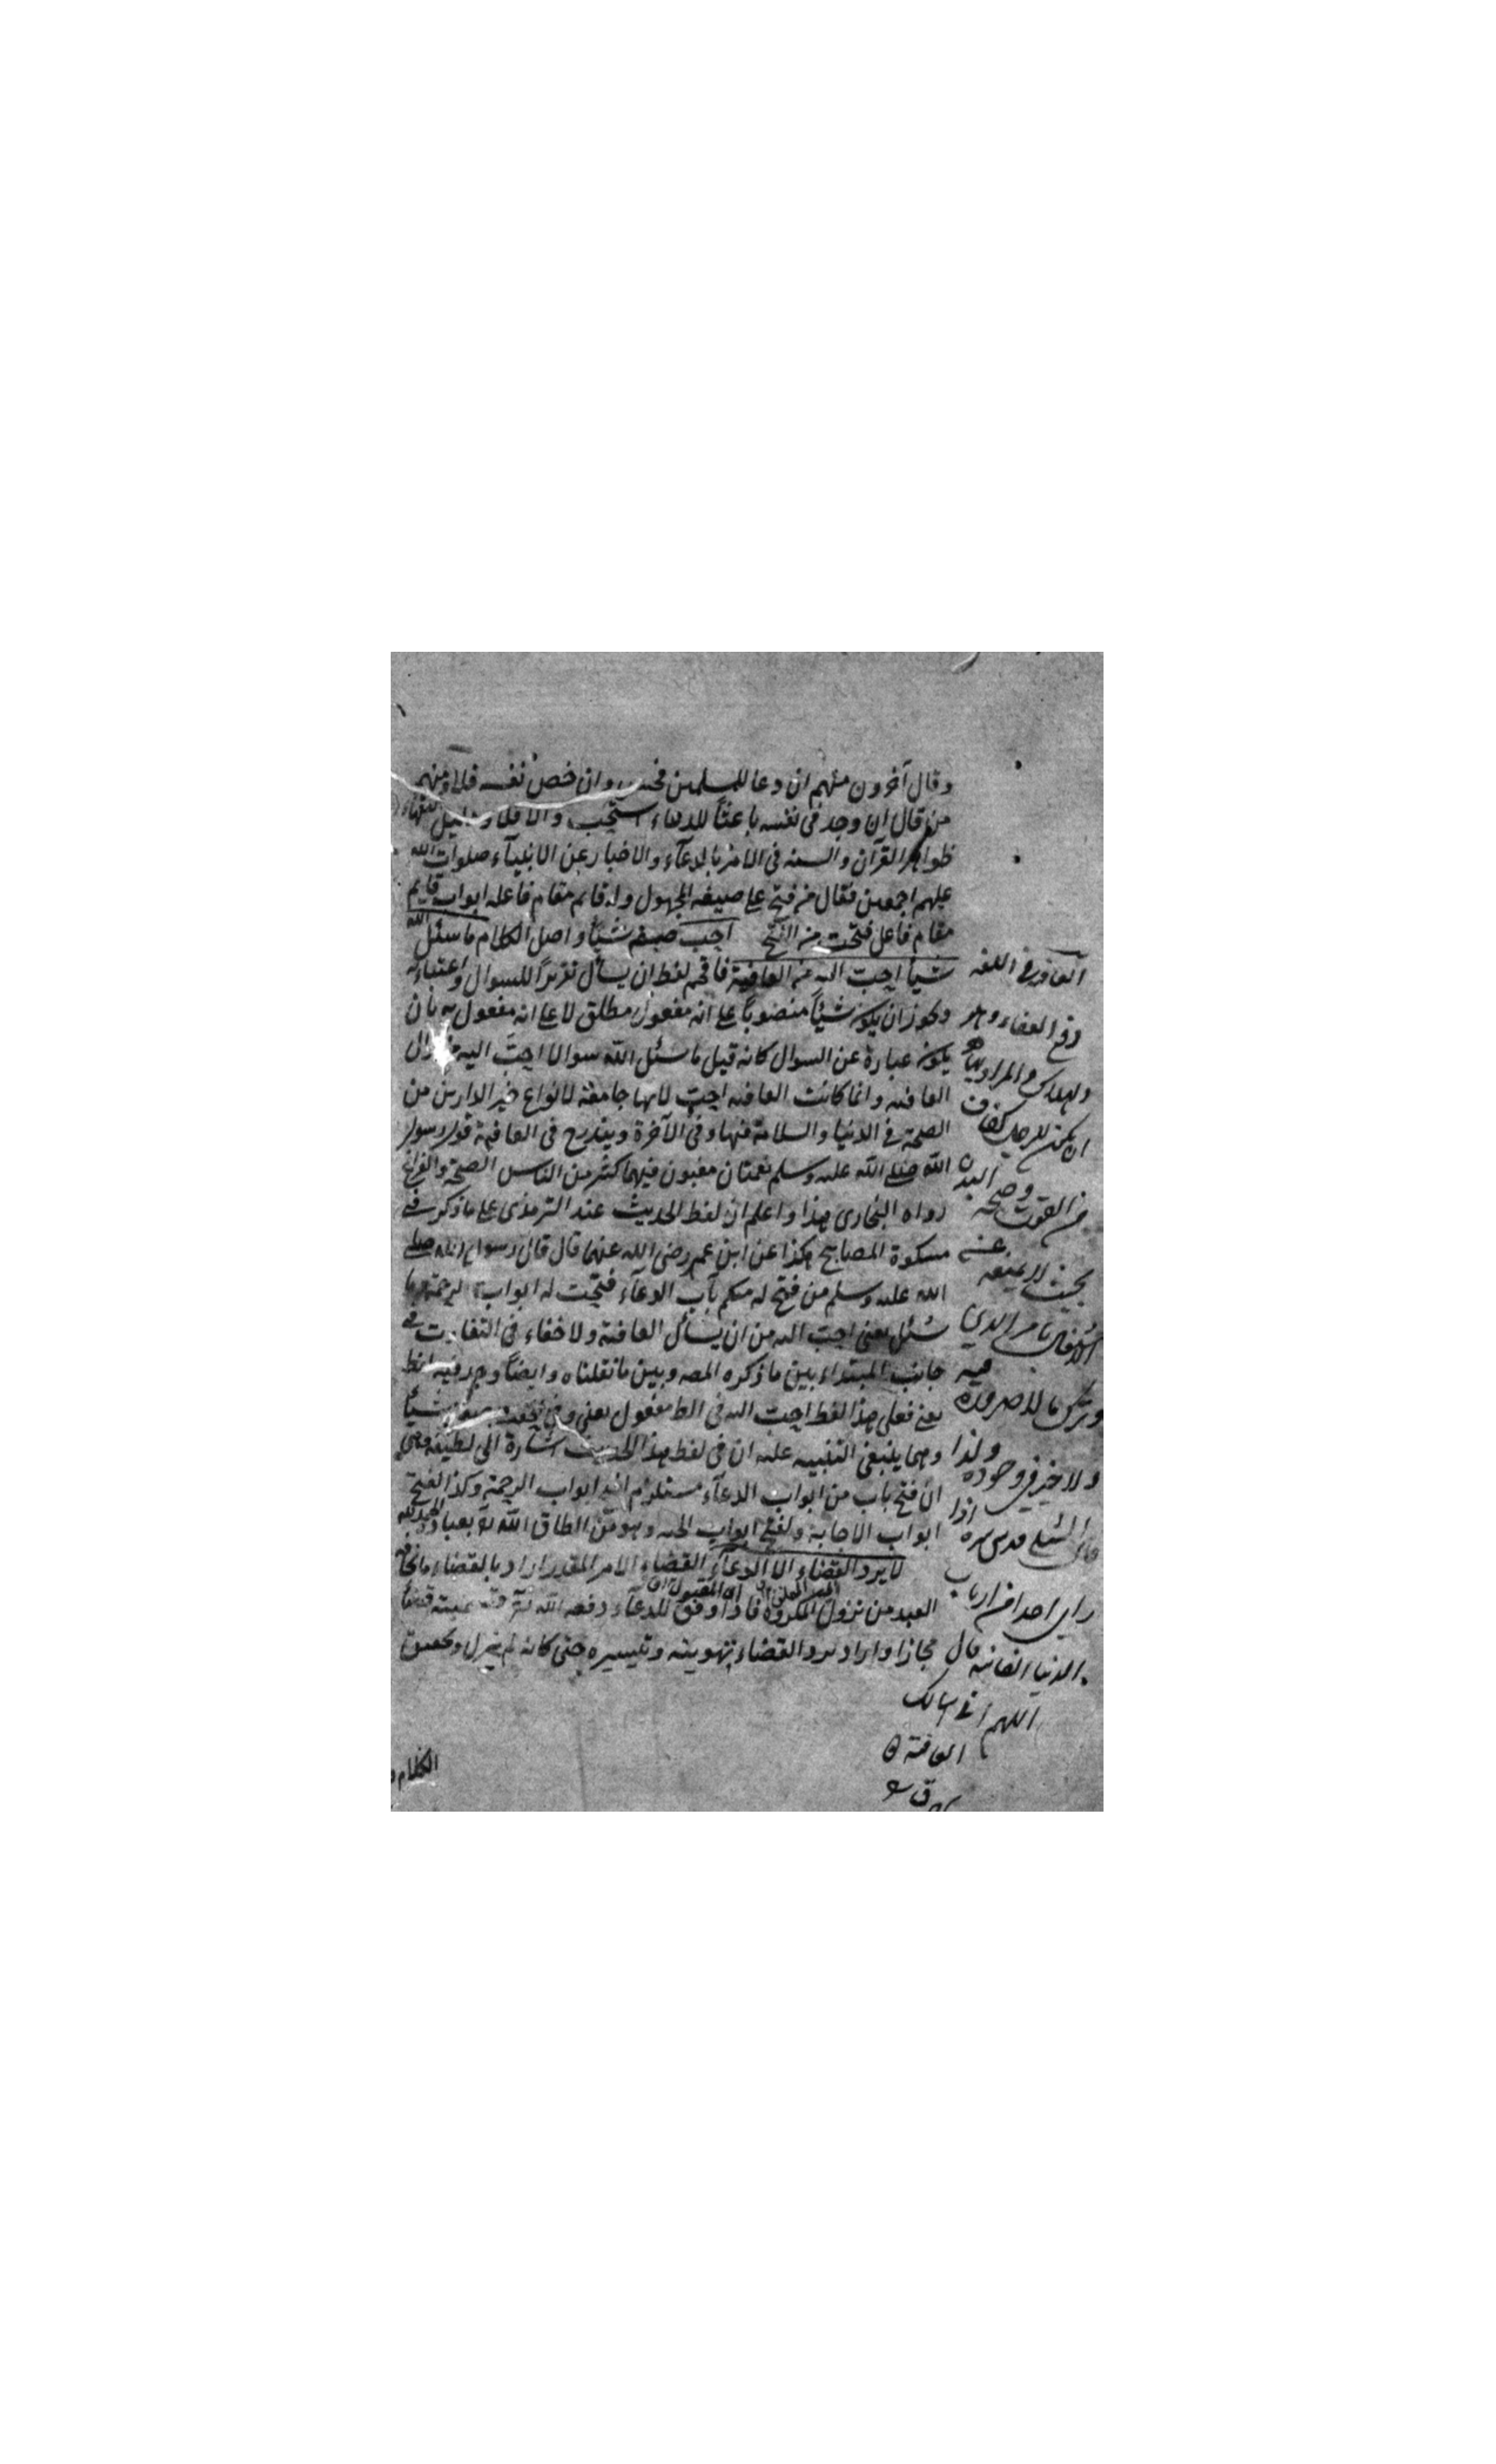 وقال آخرون منهم ان دعا للمسلمين فحسن وان خص نفسه فلا ومنهم
من قال ان وجد في نفسه باعثاً للدعاء استحب والا فلا ودليل الفقهاء
ظواهر القرآن والسنه في الامر بالدعآء والاخبار عن الانبيآء صلوات الله
عليهم اجمعين فقال من فتح على صيغه المجهول وله قائم مقام فاعله ابواب قايم
مقام فاعل فتحت من الفتح احب صفه شيئاً واصل الكلام ما سئل الله
شيئا احب اليه من العافية فاقحم لفظ ان يسأل تقريراً للسوال واعتباء به
وجوز ان يكون شيئاً منصوباً على انه مفعول مطلق لا على انه مفعول به بان
يكون عبارة عن السوال كانه قيل ما سئل الله سوالا احب اليه من سوال
العافيه وانما كانت العافيه احب لانها جامعة لانواع خير الدارين من
الصحة في الدنيا والسلامة فيها وفي الآخرة ويندرج في العافية قول رسول
الله صلى الله عليه وسلم نعمتان مغبون فيهما كثير من الناس الصحة والفراغ
رواه البخارى هذا واعلم ان لفظ الحديث عند الترمذى على ما ذكر في
مسكوة المصابيح هكذا عن ابن عمر رضى الله عنهما قال قال رسول الله صلى
الله عليه وسلم من فتح له منكم باب الدعآء فتحت له ابواب الرحمة وما
سئل يعني احب اليه من ان يسأل العافية ولا خفاء في التفاوت في
جانب المبتداء بين ما ذكره المصه وبين ما نقلناه وايضاً وجد فيه لفظ
يعني فعلى هذا لفظ احب اليه في الط مفعول يعني وفي شيئاً
ومما ينبغي التنبيه عليه ان في لفظ هذا الحديث اشارة الى لطيفة وهى
ان فتح باب من ابواب الدعآء مستلزم لفتح ابواب الرحمة وكذا لفتح
ابواب الاجابة ولفتح ابواب الجنه وهو من الطاق الله تع بعباده والحمد لله
لا يرد القضاء الا الدعآء القضاء الامر المقدر اراد بالقضاء ما يخافه
العبد من نزول المكروه فاذا وفق للدعآء دفعه الله تع فتسميته قضاً
مجازا واراد برد القضاء تهوينه وتيسيره حتى كانه لم ينزل وتحقيق
الكلام
العافية في اللغه
دفع العفاء وهو
الهلاك والمراد بها
ان يكون للرجل كفاف
من القوت وصحة البدن
بحيث لا يمنعه عن
الاشتغال بامر الدين
وترك ما لا ضرورة فيه
ولا خير في وجوده ولذا
قال الشبلي قدس سره اذا
راى احدا من ارباب
الدنيا الفانيه قال
اللهم اني اسالك
العافية